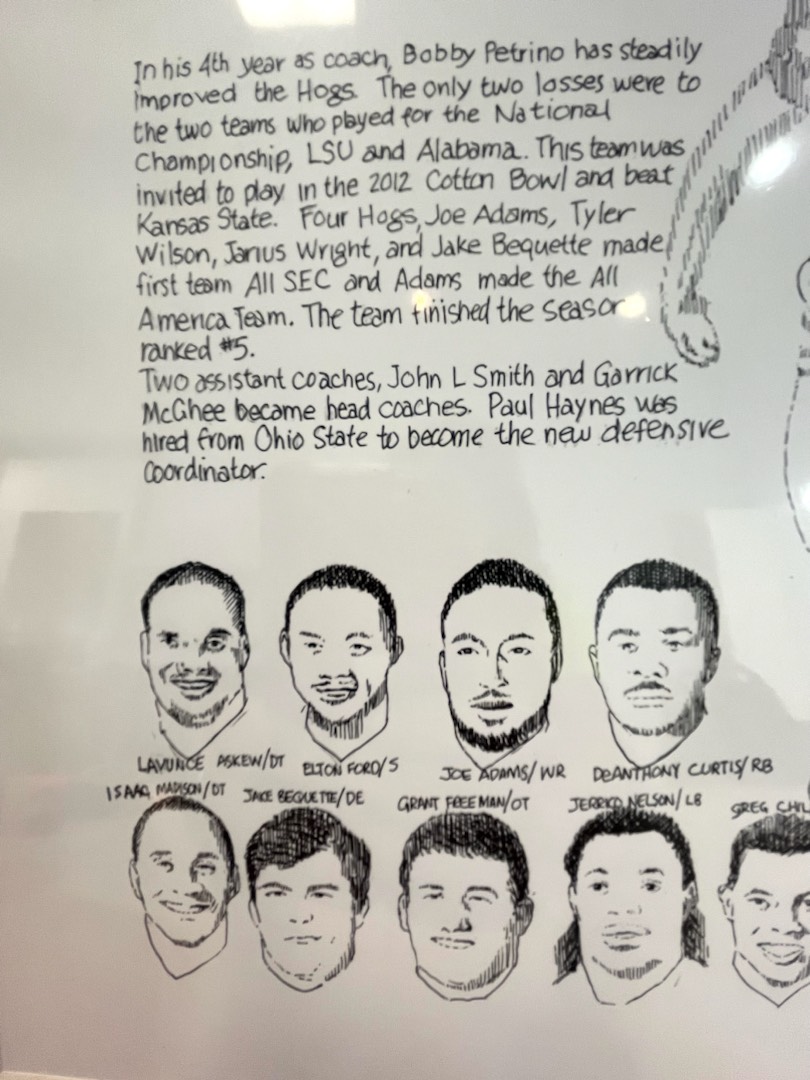 In his 4th year as coach, Bobby Petrino has steadily
improved the Hogs. The only two losses were to
the two teams who played for the National
Championship, LSU and Alabama. This team was
invited to play in the 2012 Cotton Bowl and beat
Kansas State. Four Hogs, Joe Adams, Tyler
Wilson, Jarius Wright, and Jake Bequette made
first team All SEC and Adams made the All
America Team. The team finished the season
ranked #5.
Two assistant coaches, John L Smith and Garrick
McGhee became head coaches. Paul Haynes was
hired from Ohio State to become the new defensive
Coordinator.
LAVUNCE ASKEW/DT ELTON FORD/S JOE ADAMS/WR DeANTHONY CURTIS/RB
ISAAC MADISON/DT JAKE BEQUETTE/DE GRANT FREEMAN/OT JERRICO NELSON/LB GREG